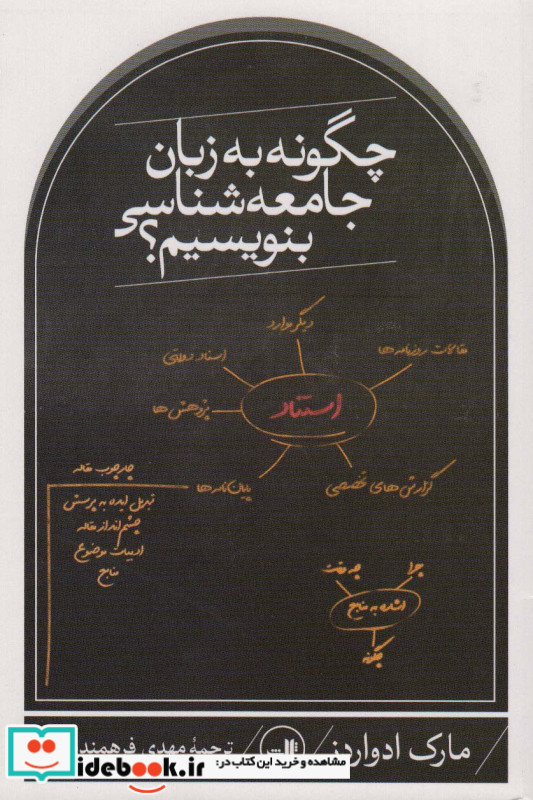 چگونه به زبان
جامعه‌شناسی
بنویسیم؟
دیگر موارد
مقالات روزنامه‌ها
اسناد دولتی
استناد
پژوهش‌ها
گزارش‌های تخصصی
پایان‌نامه‌ها
چارچوب مقاله
تبدیل ایده به پرسش
چشم‌انداز مقاله
ادبیات موضوع
منابع
چرا
چه وقت
اشاره به منابع
چگونه
مارک ادواردز / ثالث / ترجمهٔ مهدی فرهمند
مشاهده و خرید این کتاب در:
idebook.ir